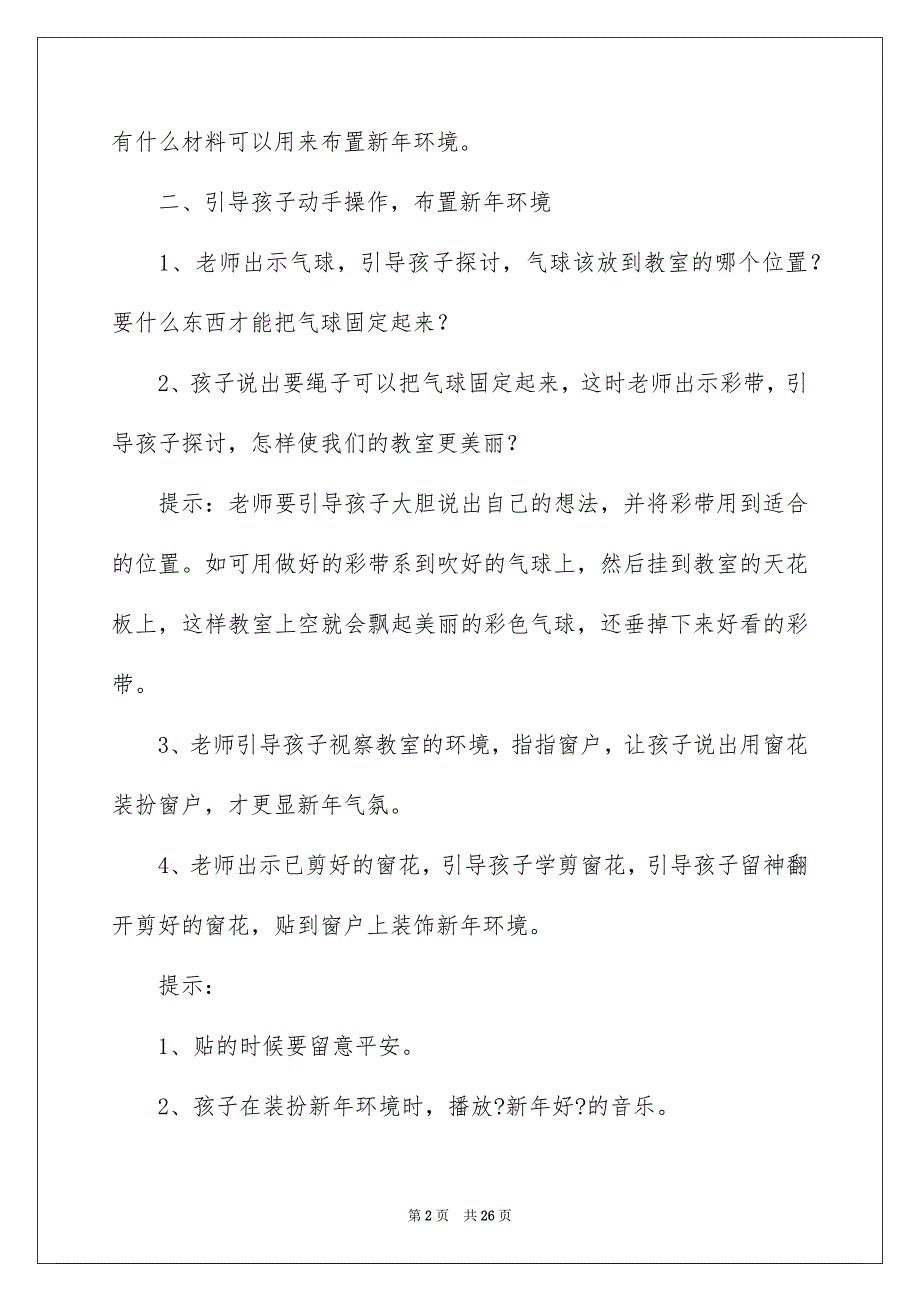 有什么材料可以用来布置新年环境。
二、引导孩子动手操作，布置新年环境
1、老师出示气球，引导孩子探讨，气球该放到教室的哪个位置？
要什么东西才能把气球固定起来？
2、孩子说出要绳子可以把气球固定起来，这时老师出示彩带，引
导孩子探讨，怎样使我们的教室更美丽？
提示：老师要引导孩子大胆说出自己的想法，并将彩带用到适合
的位置。如可用做好的彩带系到吹好的气球上，然后挂到教室的天花
板上，这样教室上空就会飘起美丽的彩色气球，还垂掉下来好看的彩
带。
3、老师引导孩子视察教室的环境，指指窗户，让孩子说出用窗花
装扮窗户，才更显新年气氛。
4、老师出示已剪好的窗花，引导孩子学剪窗花，引导孩子留神翻
开剪好的窗花，贴到窗户上装饰新年环境。
提示：
1、贴的时候要留意平安。
2、孩子在装扮新年环境时，播放?新年好?的音乐。
第 2 页 共 26 页